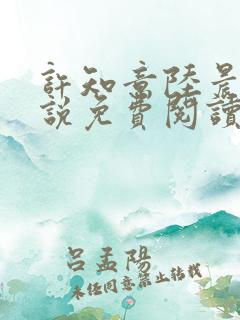 許知意陸晨
說免費閱讀
呂孟陽
未经同意禁止转载